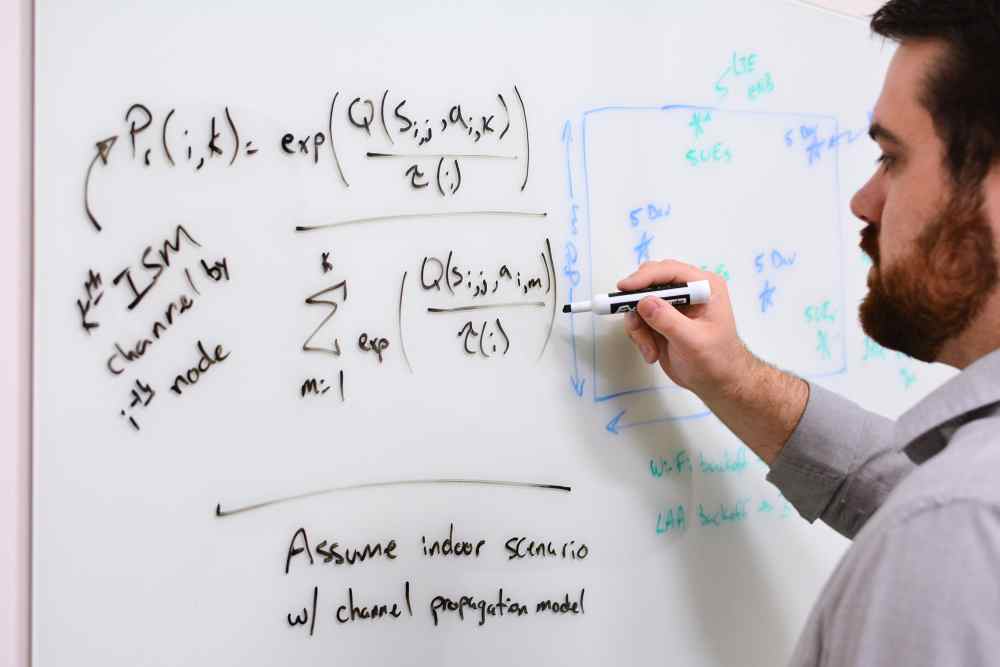 Pr(i,k) = exp(Q(si,j, ai,k) / τ(i))
k
Σ exp(Q(si,j, ai,m) / τ(i))
m=1
kth ISM
channel by
i-th node
Assume indoor scenario
w/ channel propagation model
5 LTE
eNB
5 UEs
5 Dev
5 Dev
Wi-Fi backoff
LAA backoff